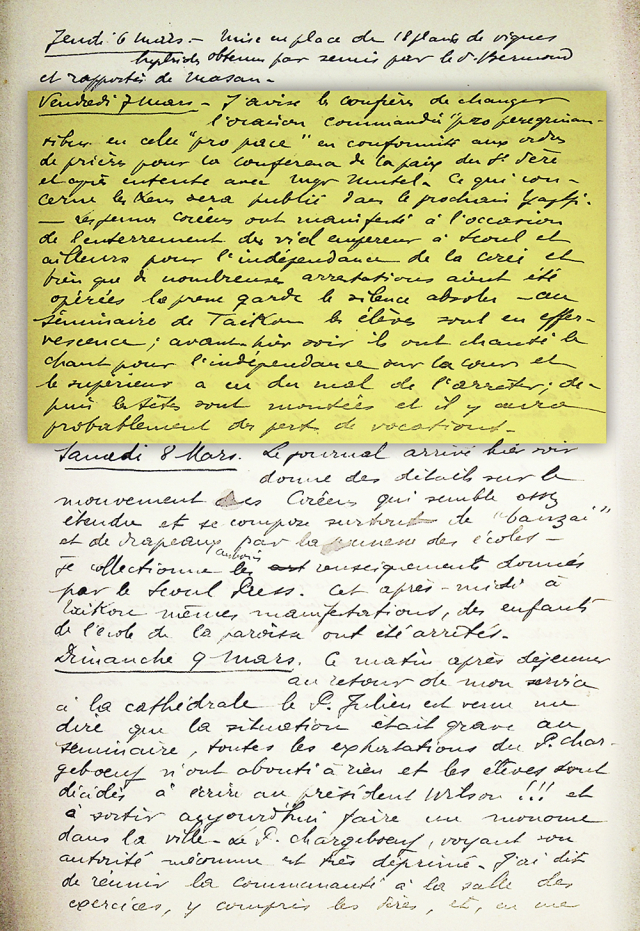 Jeudi 6 Mars. - Mise en place de 18 plants de vignes
hybrides obtenus par semis par le d. Bermond
et rapportés de Masan -
Vendredi 7 Mars - J'avise les confrères de changer
l'oraison commandée "pro peregrinan-
tibus en celle "pro pace" en conformité aux ordres
de prières pour la conférence de la paix du St Père
et après entente avec Mgr Mutel. Ce qui con-
cerne les sera publié dans le prochain
- Les jeunes coréens ont manifesté à l'occasion
de l'enterrement du vieil empereur à Seoul et
ailleurs pour l'indépendance de la Corée et
bien que de nombreuses arrestations aient été
opérées la presse garde le silence absolu - au
séminaire de Taikou les élèves sont en effer-
vescence ; avant-hier soir ils ont chanté le
chant pour l'indépendance sur la cour et
le supérieur a eu du mal de l'arrêter ; de-
puis les têtes sont montées et il y aura
probablement des pertes de vocations -
Samedi 8 Mars. Le journal arrivé hier soir
donne des détails sur le
mouvement des Coréens qui semble assez
étendu et se compose surtout de "banzai"
et de drapeaux par la jeunesse des écoles -
Je collectionne les renseignements donnés
par le Seoul Press. Cet après-midi à
Taikou mêmes manifestations, des enfants
de l'école de la paroisse ont été arrêtés.
Dimanche 9 Mars. Ce matin après déjeuner
au retour de mon service
à la cathédrale le P. Julien est venu me
dire que la situation était grave au
séminaire, toutes les exhortations du P. Char-
geboeuf n'ont abouti à rien et les élèves sont
décidés à écrire au président Wilson !!! et
à sortir aujourd'hui faire un monome
dans la ville - Le P. Chargeboeuf, voyant son
autorité méconnue est très déprimé. J'ai dit
de réunir la communauté à la salle des
exercices, y compris les Pères, et, en une